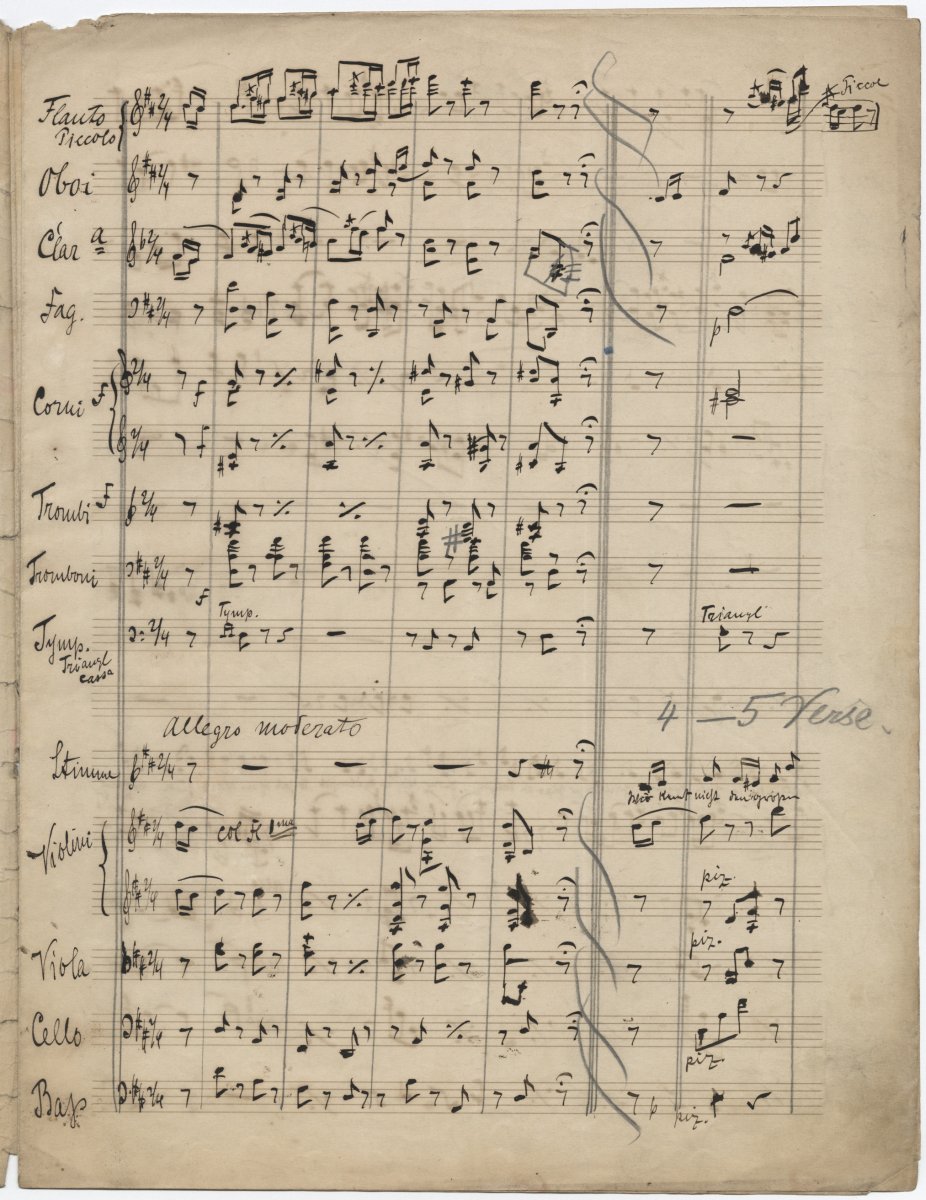 Flauto
Piccolo
Piccol
Oboi
Clar a
Fag.
Corni F
f
f
Trombi F
Tromboni
f
Tymp.
Triangl
cassa
Tymp.
Triangl
Allegro moderato
4 – 5 Verse.
Stimme
nicht den großen
Violini
col
piz.
Viola
piz.
Cello
piz.
Baß
p
piz.